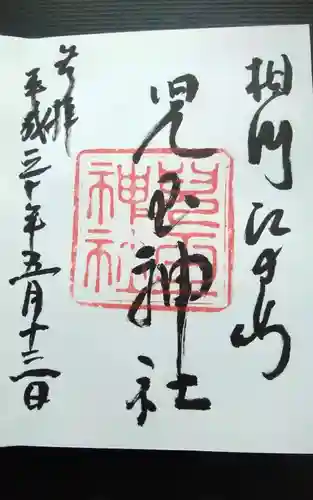 相州江の島
児玉神社
奉拝
平成三十年五月十三日
兒玉
神社